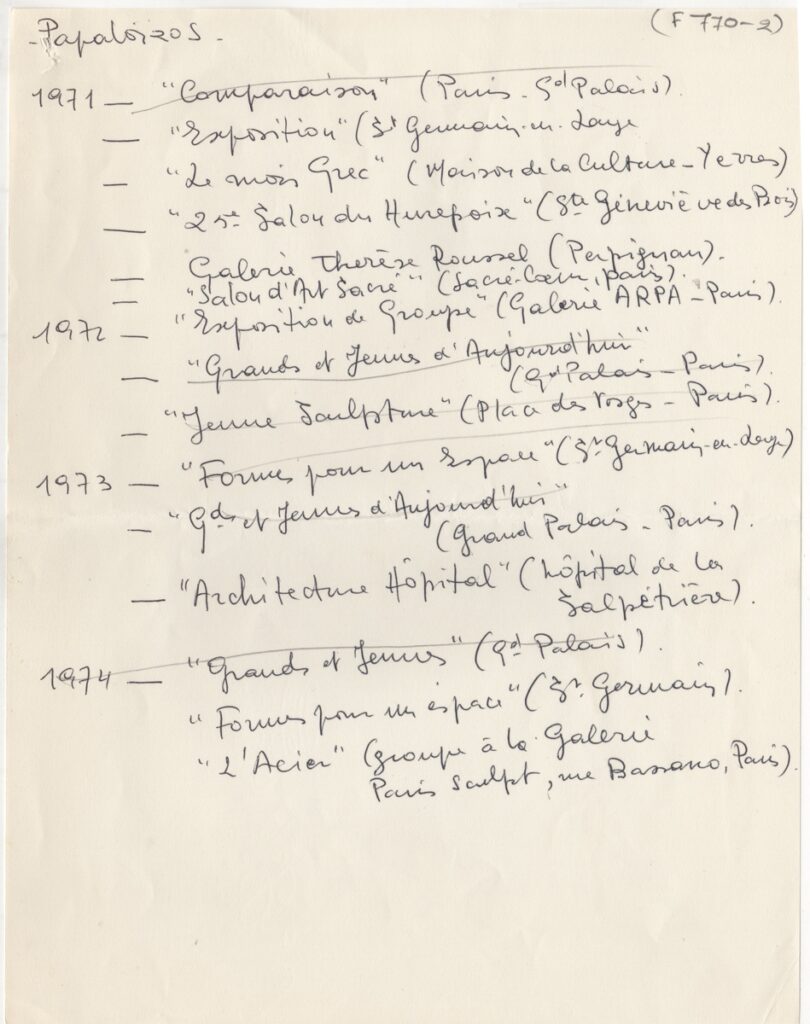 - Papaloizos - (F 770-2)
1971 — "Comparaison" (Paris - Gd Palais).
— "Exposition" (St Germain-en-Laye
— "Le mois Grec" (Maison de la Culture - Yerres)
— "25e Salon du Hurepoix" (Ste Géneviève des Bois)
— Galerie Therèse Roussel (Perpignan).
— "Salon d'Art Sacré" (Sacré-Coeur, Paris).
1972 — "Exposition de Groupe" (Galerie ARPA - Paris).
— "Grands et Jeunes d'Aujourd'hui"
(Gd Palais - Paris).
— "Jeune Sculpture" (Place des Vosges - Paris).
1973 — "Formes pour un Espace" (St Germain-en-Laye)
— "Gds et Jeunes d'Aujourd'hui"
(Grand Palais - Paris).
— "Architecture Hôpital" (hôpital de la
Salpétrière).
1974 — "Grands et Jeunes" (Gd Palais).
"Formes pour un espace" (St. Germain).
"L'Acier" (groupe à la Galerie
Paris Sculpt, rue Bassano, Paris).